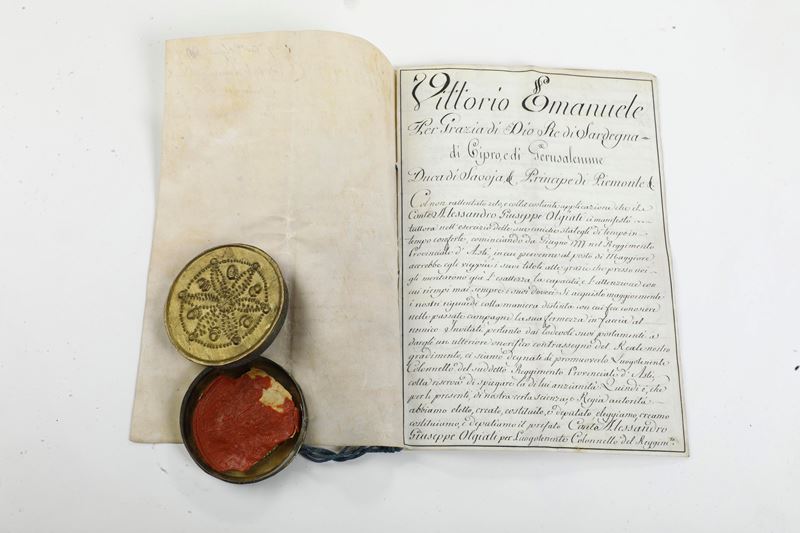 Vittorio Emanuele
Per Grazia di Dio Re di Sardegna
di Cipro, e di Gerusalemme
Duca di Savoja &, Principe di Piemonte &
Col non rallentato zelo, e colla costante applicazione che il
Conte Alessandro Giuseppe Olgiati ci manifestò
tuttora nell'esercizio delle sue cariche stategli di tempo in
tempo conferte, cominciando da Giugno nel Reggimento
Provinciale d'Asti, in cui pervenne al posto di Maggiore,
accrebbe egli vieppiù i suoi titoli alle grazie che presso noi
gli meritarono già l'esattezza, la capacità, e l'attenzione con
cui riempì mai sempre i suoi doveri. Si acquistò maggiormente
i nostri riguardi colla maniera distinta con cui fece conoscere
nelle passate campagne la sua fermezza in faccia al
nimico. Invitati pertanto dai lodevoli suoi portamenti a
dargli un ulteriore onorifico contrassegno del Reale nostro
gradimento, ci siamo degnati di promoverlo Luogotenente
Colonnello del suddetto Reggimento Provinciale d'Asti,
colla riserva di spiegare la di lui anzianità. Quindi è, che
per le presenti, di nostra certa scienza, e Regia autorità
abbiamo eletto, creato, costituito, e deputato, eleggiamo, creamo
costituiamo, e deputiamo il prefato Conte Alessandro
Giuseppe Olgiati per Luogotenente Colonnello del Reggim.to